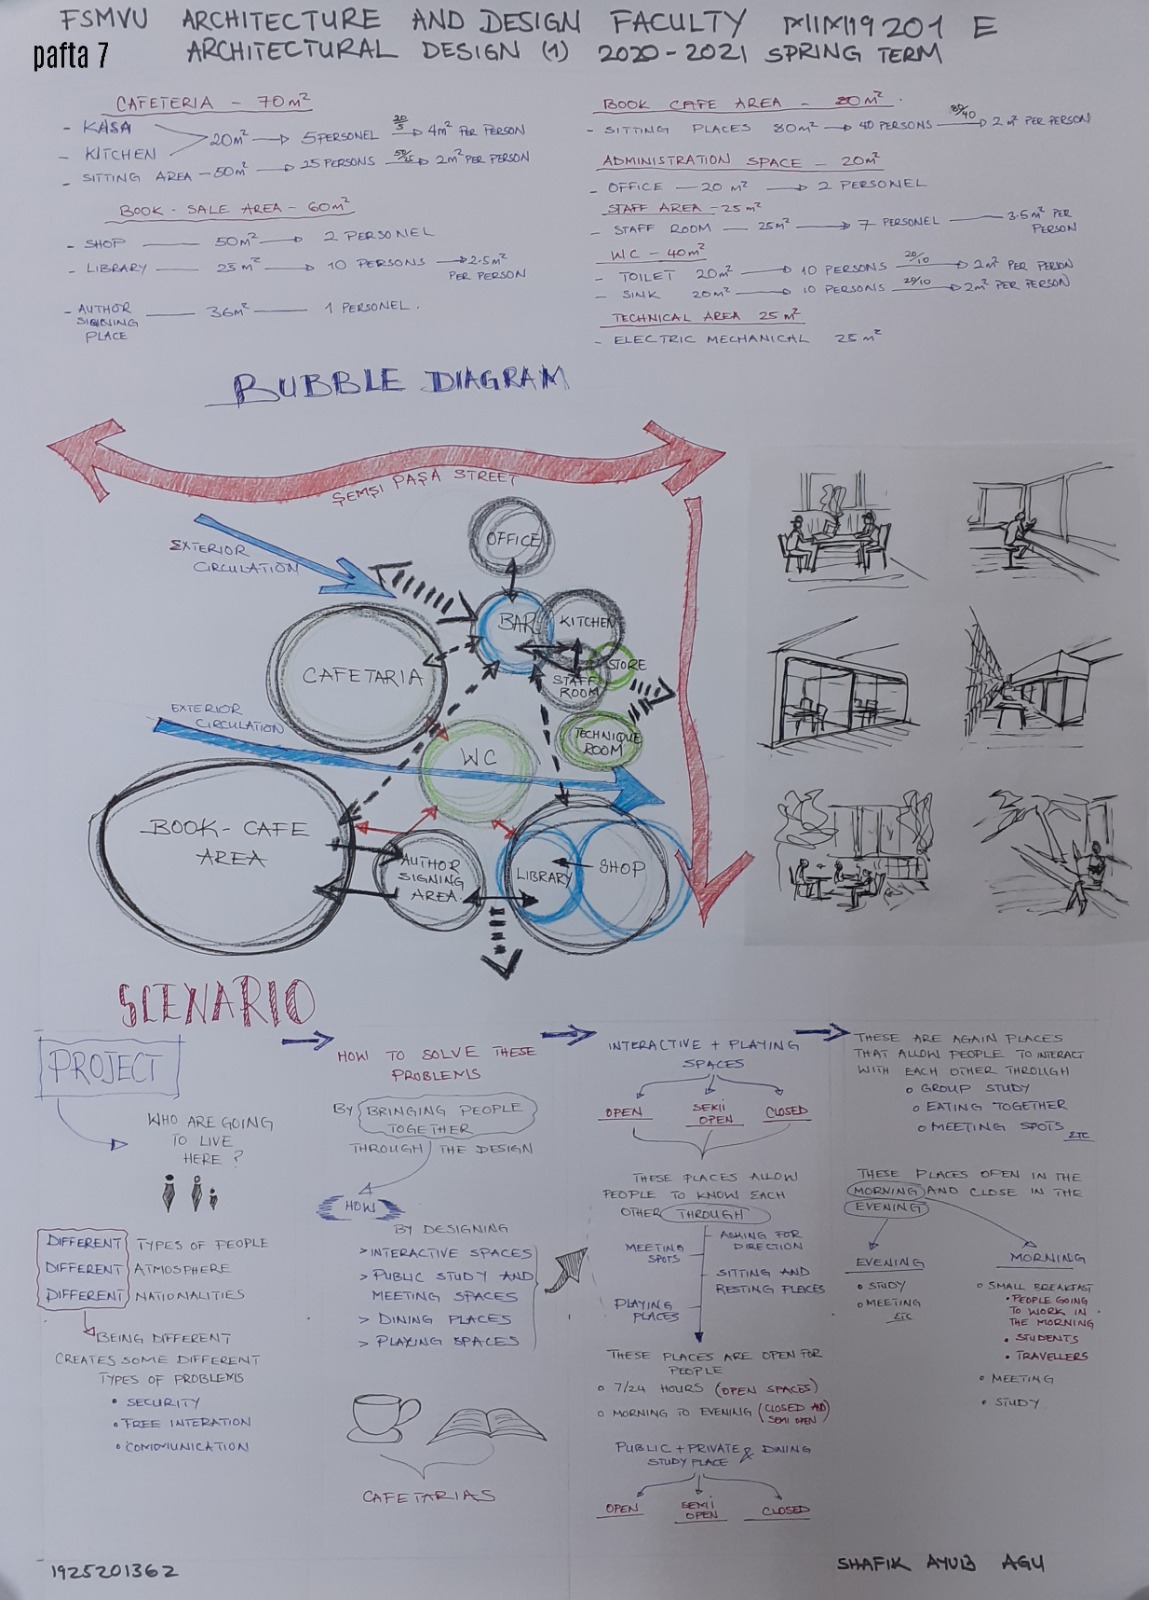 FSMVU ARCHITECTURE AND DESIGN FACULTY 201 E
pafta 7
ARCHITECTURAL DESIGN (1) 2020-2021 SPRING TERM
CAFETERIA - 70m²
- KASA
- KITCHEN
20m² → 5 PERSONEL 20/5 → 4m² PER PERSON
- SITTING AREA - 50m² → 25 PERSONS → 2m² PER PERSON
BOOK - SALE AREA - 60m²
- SHOP — 50m² → 2 PERSONEL
- LIBRARY — 25m² → 10 PERSONS → 2.5m²
PER PERSON
- AUTHOR
SIGNING
PLACE
— 36m² — 1 PERSONEL.
BOOK CAFE AREA - 80m².
- SITTING PLACES 80m² → 40 PERSONS 80/40 → 2m² PER PERSON
ADMINISTRATION SPACE - 20m²
- OFFICE — 20m² → 2 PERSONEL
STAFF AREA - 25m²
- STAFF ROOM — 25m² → 7 PERSONEL — 3.5m² PER
PERSON
WC - 40m²
- TOILET 20m² → 10 PERSONS 20/10 → 2m² PER PERSON
- SINK 20m² → 10 PERSONS 20/10 → 2m² PER PERSON
TECHNICAL AREA 25m²
- ELECTRIC MECHANICAL 25m²
BUBBLE DIAGRAM
ŞEMŞİ PAŞA STREET
EXTERIOR
CIRCULATION
OFFICE
BAR
KITCHEN
STORE
STAFF
ROOM
CAFETARIA
EXTERIOR
CIRCULATION
TECHNIQUE
ROOM
WC
BOOK-CAFE
AREA
AUTHOR
SIGNING
AREA
LIBRARY
SHOP
SCENARIO
PROJECT
WHO ARE GOING
TO LIVE
HERE ?
DIFFERENT TYPES OF PEOPLE
DIFFERENT ATMOSPHERE
DIFFERENT NATIONALITIES
BEING DIFFERENT
CREATES SOME DIFFERENT
TYPES OF PROBLEMS
• SECURITY
• FREE INTERATION
• COMMUNICATION
HOW TO SOLVE THESE
PROBLEMS
BY BRINGING PEOPLE
TOGETHER
THROUGH THE DESIGN
HOW
BY DESIGNING
> INTERACTIVE SPACES
> PUBLIC STUDY AND
MEETING SPACES
> DINING PLACES
> PLAYING SPACES
CAFETARIAS
INTERACTIVE + PLAYING
SPACES
OPEN
SEMII
OPEN
CLOSED
THESE PLACES ALLOW
PEOPLE TO KNOW EACH
OTHER THROUGH
ASKING FOR
DIRECTION
MEETING
SPOTS
SITTING AND
RESTING PLACES
PLAYING
PLACES
THESE PLACES ARE OPEN FOR
PEOPLE
o 7/24 HOURS (OPEN SPACES)
o MORNING TO EVENING (CLOSED AND
SEMI OPEN)
PUBLIC + PRIVATE & DINING
STUDY PLACE
OPEN
SEMII
OPEN
CLOSED
THESE ARE AGAIN PLACES
THAT ALLOW PEOPLE TO INTERACT
WITH EACH OTHER THROUGH
o GROUP STUDY
o EATING TOGETHER
o MEETING SPOTS
ETC
THESE PLACES OPEN IN THE
MORNING AND CLOSE IN THE
EVENING
EVENING
o STUDY
o MEETING
ETC
MORNING
o SMALL BREAKFAST
• PEOPLE GOING
TO WORK IN
THE MORNING
• STUDENTS
• TRAVELLERS
o MEETING
• STUDY
1925201362
SHAFIK AYUB AGU